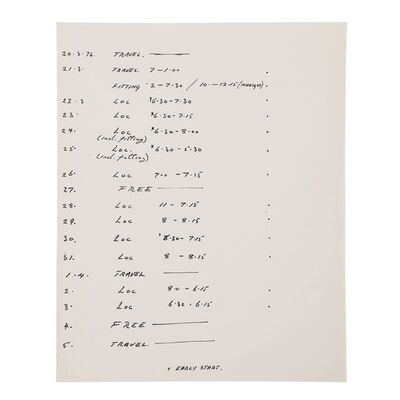 20.3.76. TRAVEL.
21.3 TRAVEL 7-1.00
FITTING 2-7.30 / 10.-12.15
22.3 LOC *6.30-7.30
23. LOC *6.30-7.15
24. LOC *6.30-8.00
(incl. fitting)
25. LOC. *6.30-5.30
(incl. fitting)
26. LOC 7.0-7.15
27. FREE
28. LOC 11-7.15
29. LOC 8-8.15
30. LOC *6.30-7.15
31. LOC 8-8.15
1.4. TRAVEL
2. LOC 8.0-6.15
3. LOC 6.30.6.15
4. FREE
5. TRAVEL.
* EARLY START.